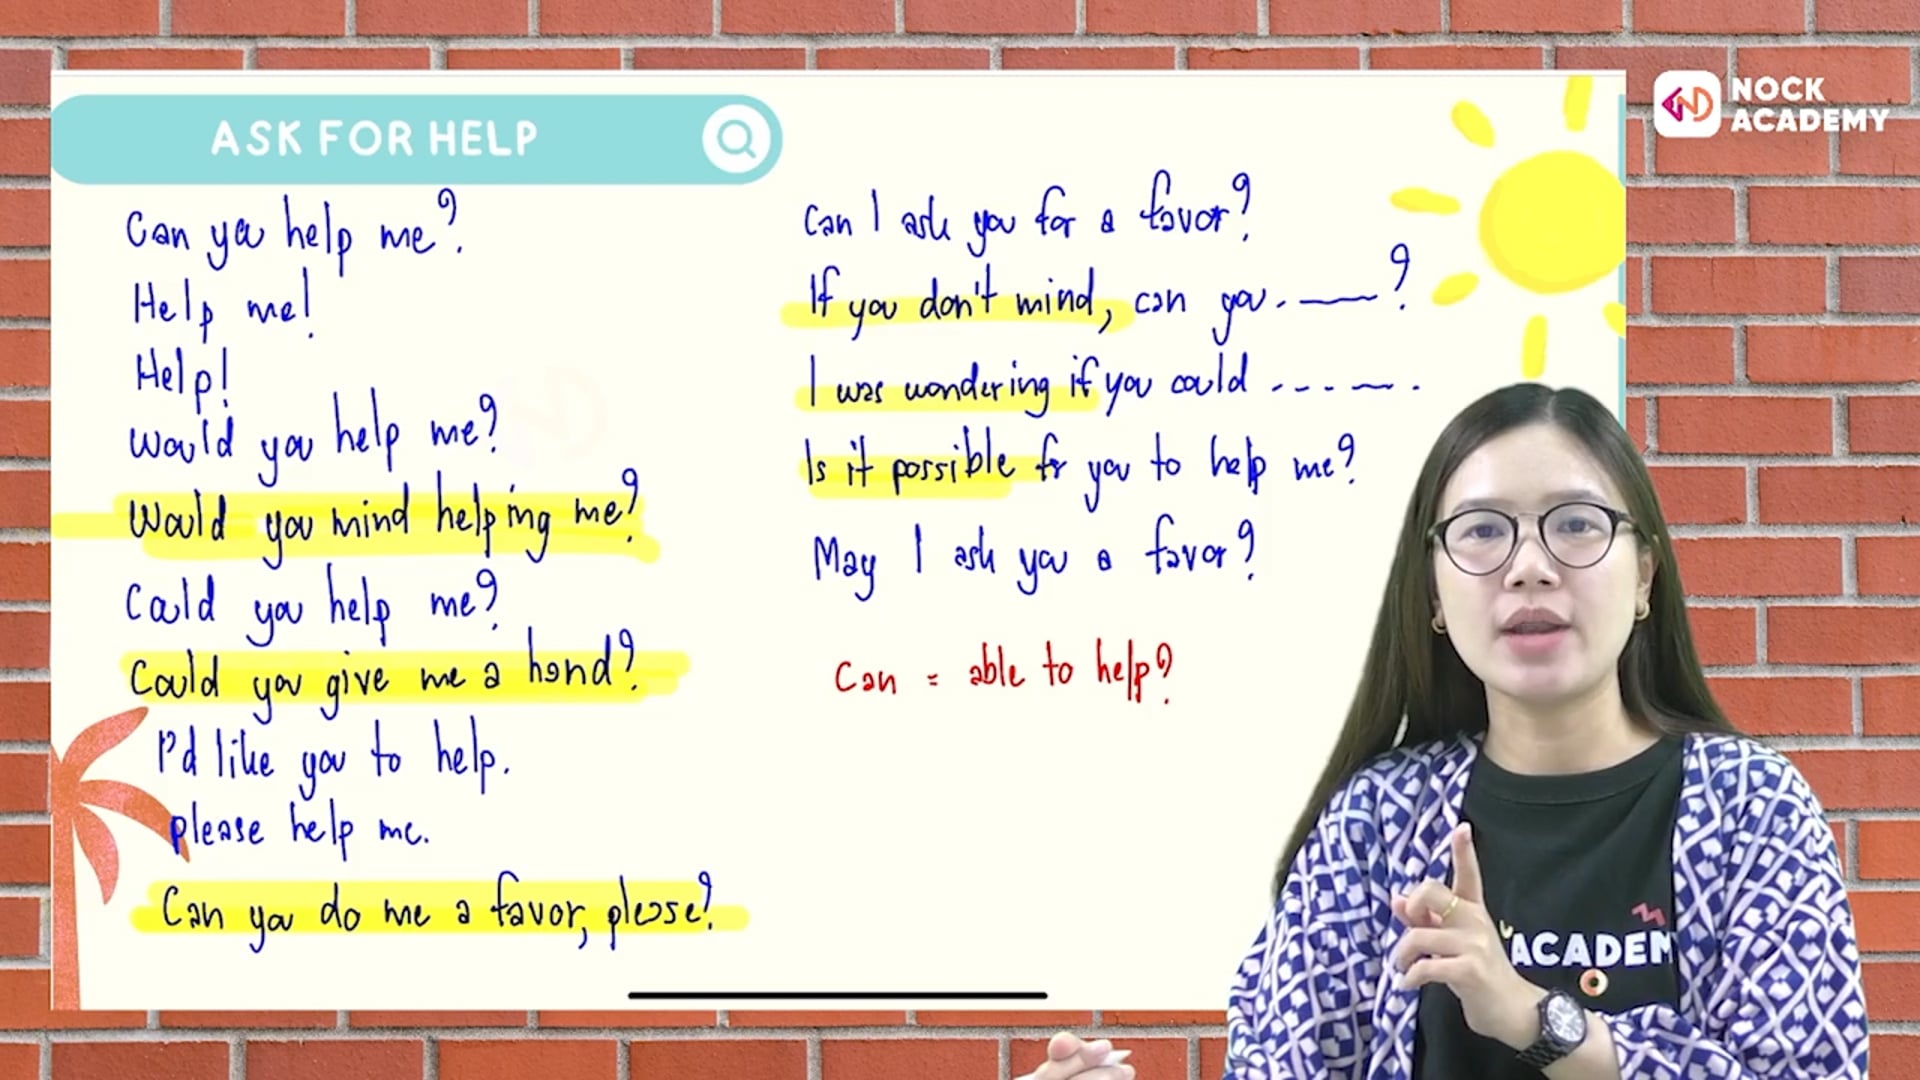 ASK FOR HELP
Can you help me?
Help me!
Help!
Would you help me?
Would you mind helping me?
Could you help me?
Could you give me a hand?
I'd like you to help.
please help me.
Can you do me a favor, please?
Can I ask you for a favor?
If you don't mind, can you. ——?
I was wondering if you could - - - — .
Is it possible for you to help me?
May I ask you a favor?
Can = able to help?
NOCK
ACADEMY
ACADEM